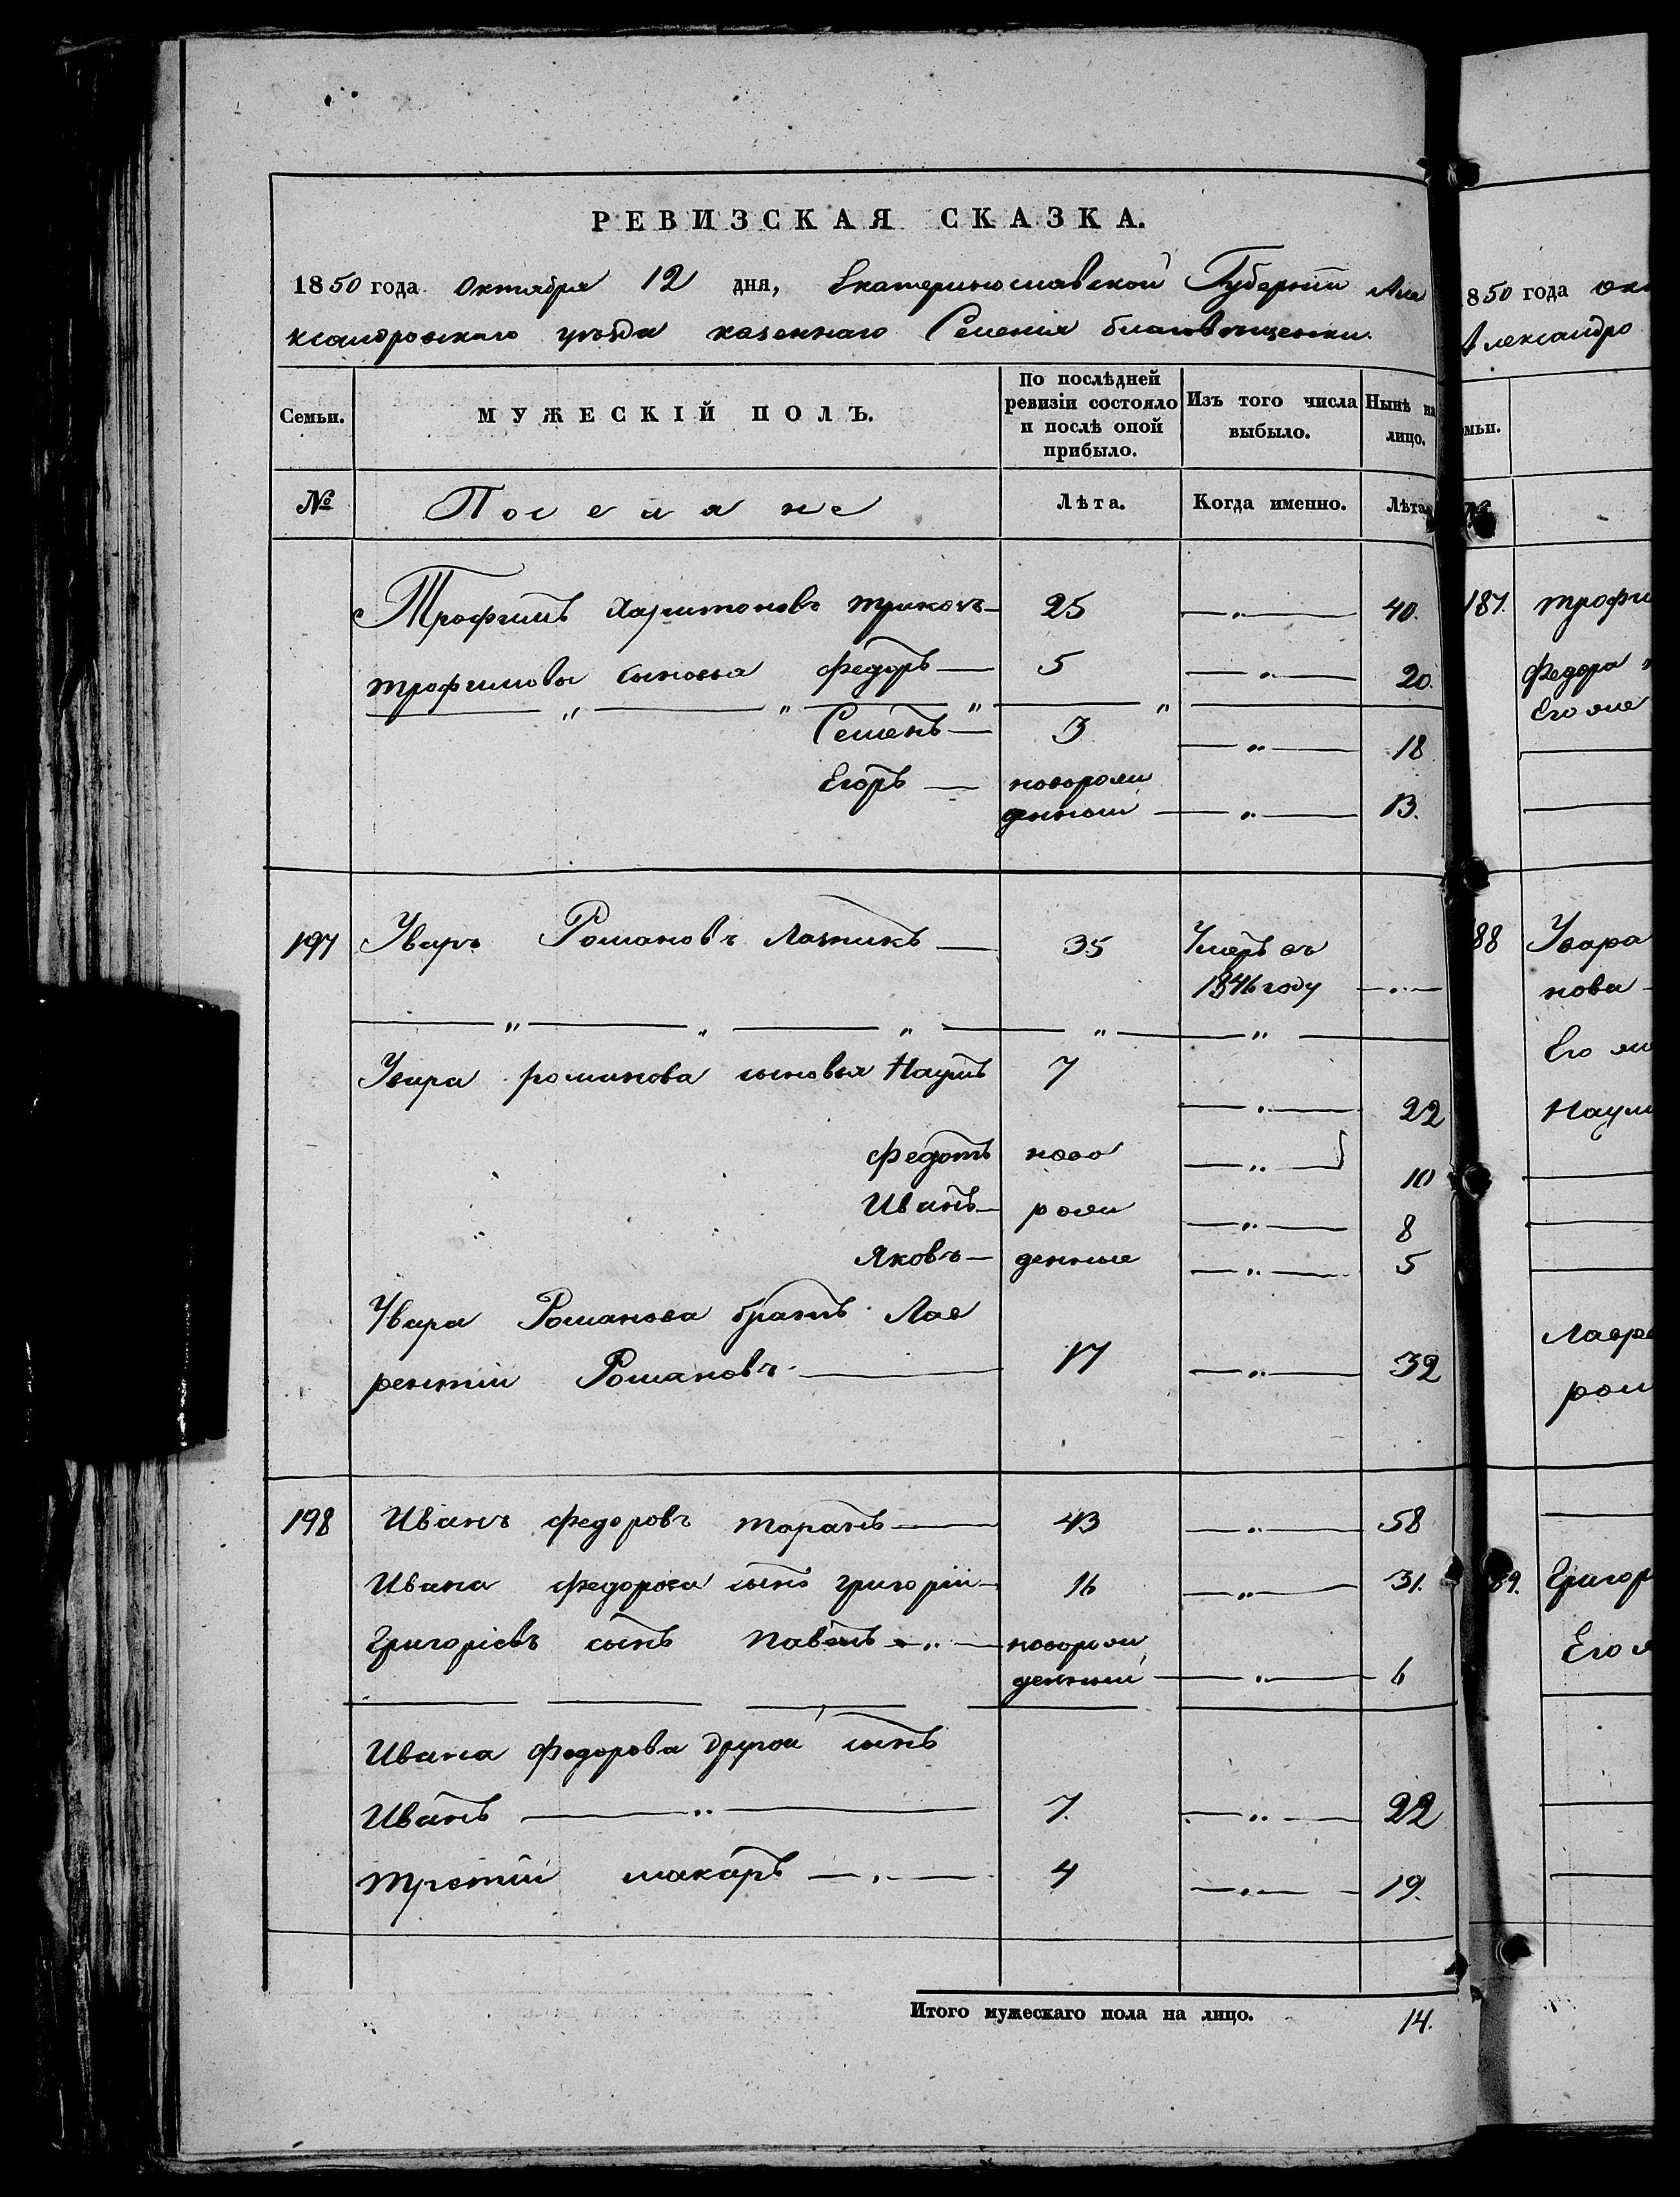 РЕВИЗСКАЯ СКАЗКА.
1850 года Октября 12 дня, Екатеринославской Губерніи Але
ксандровскаго уѣзда казеннаго Селенія благовѣщенки.
Семьи. МУЖЕСКІЙ ПОЛЪ. По послѣдней ревизіи состояло и послѣ оной прибыло. Изъ того числа выбыло. Нынѣ на лицо.
№ Поселяне Лѣта. Когда именно. Лѣта
Трофимъ Харитоновъ 25 — " — 40.
трофимовы сыновья федоръ — 5 — " — 20.
— " — " — " — " —
Семенъ — 3 — " — 18
Егоръ — новорож
денный — " — 13.
197 Уваръ Романовъ Лазникъ — 35 Умеръ въ
1846 году — " —
— " — " — " — " — " —
Увара романова сыновья Наумъ 7 — " — 22
федотъ ново — " — 10
Иванъ — рож — " — 8
Яковъ — денные — " — 5
Увара Романова братъ Лав
рентій Романовъ — 17 — " — 32
198 Иванъ федоровъ таранъ — 43 — " — 58
Ивана федорова сынъ григорій — 16 — " — 31.
Григоріевъ сынъ павелъ — " — новорож
денный — " — 6
Ивана федорова другой сынъ
Иванъ — " — 7. — " — 22
третій макаръ — " — 4 — " — 19.
Итого мужескаго пола на лицо. 14.
1850 года окт
Александро
мьи.
187. трофи
федора
Его же
88 Увара
нова —
Его же
Наум
Лавре
ром
89. Григор
Его ж